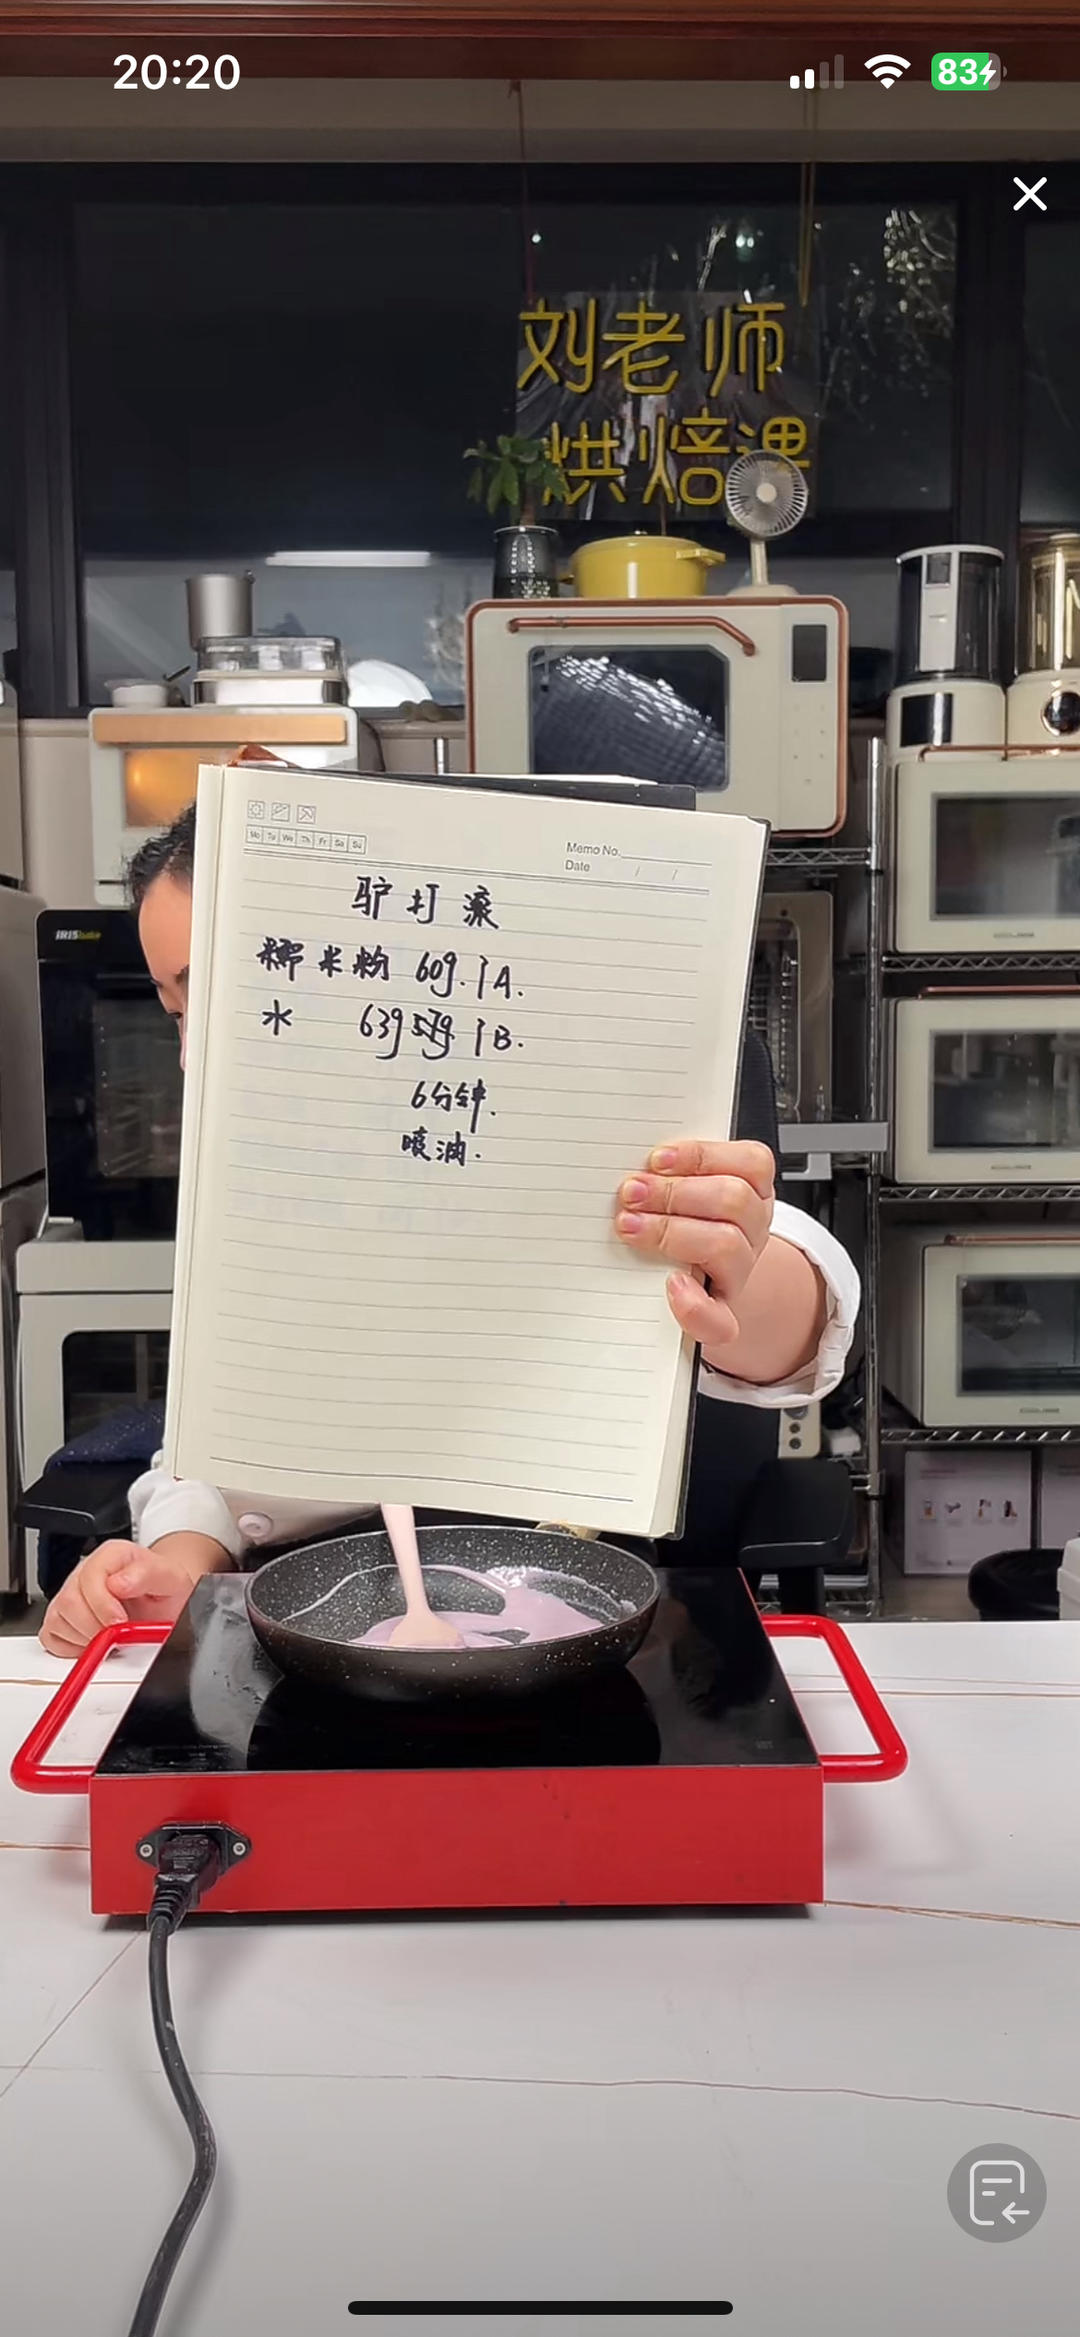 20:20
83
刘老师
烘焙课
Mo Tu We Th Fr Sa Su
Memo No.
Date / /
驴打滚
糯米粉 60g. } A.
水 63g 57g } B.
6分钟.
喷油.